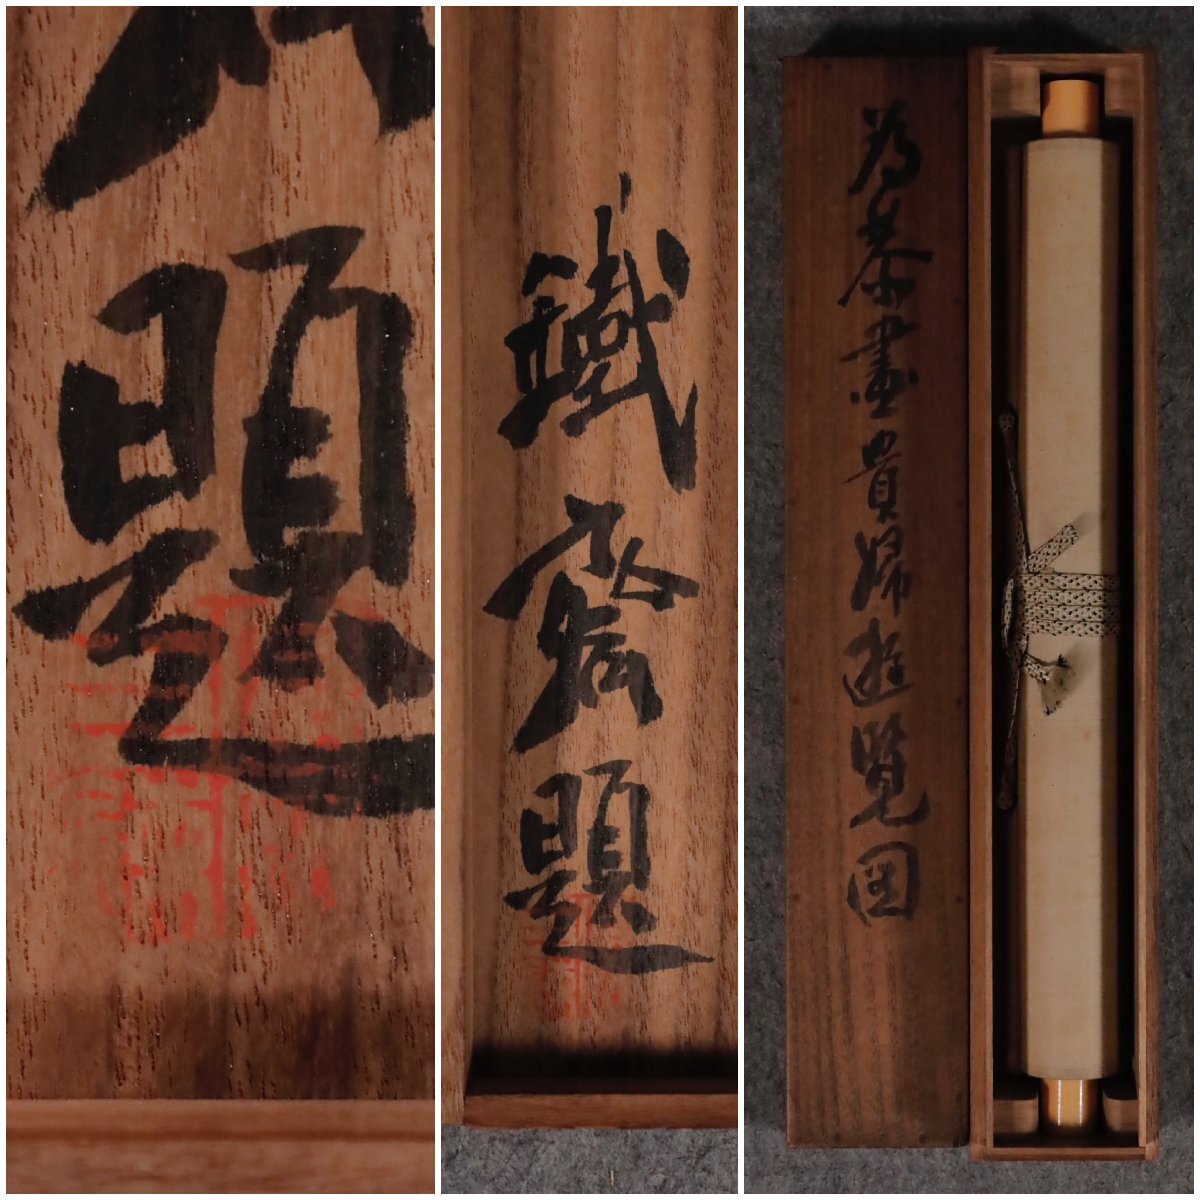 題
鐵斎題
為恭畫貴婦遊覧図